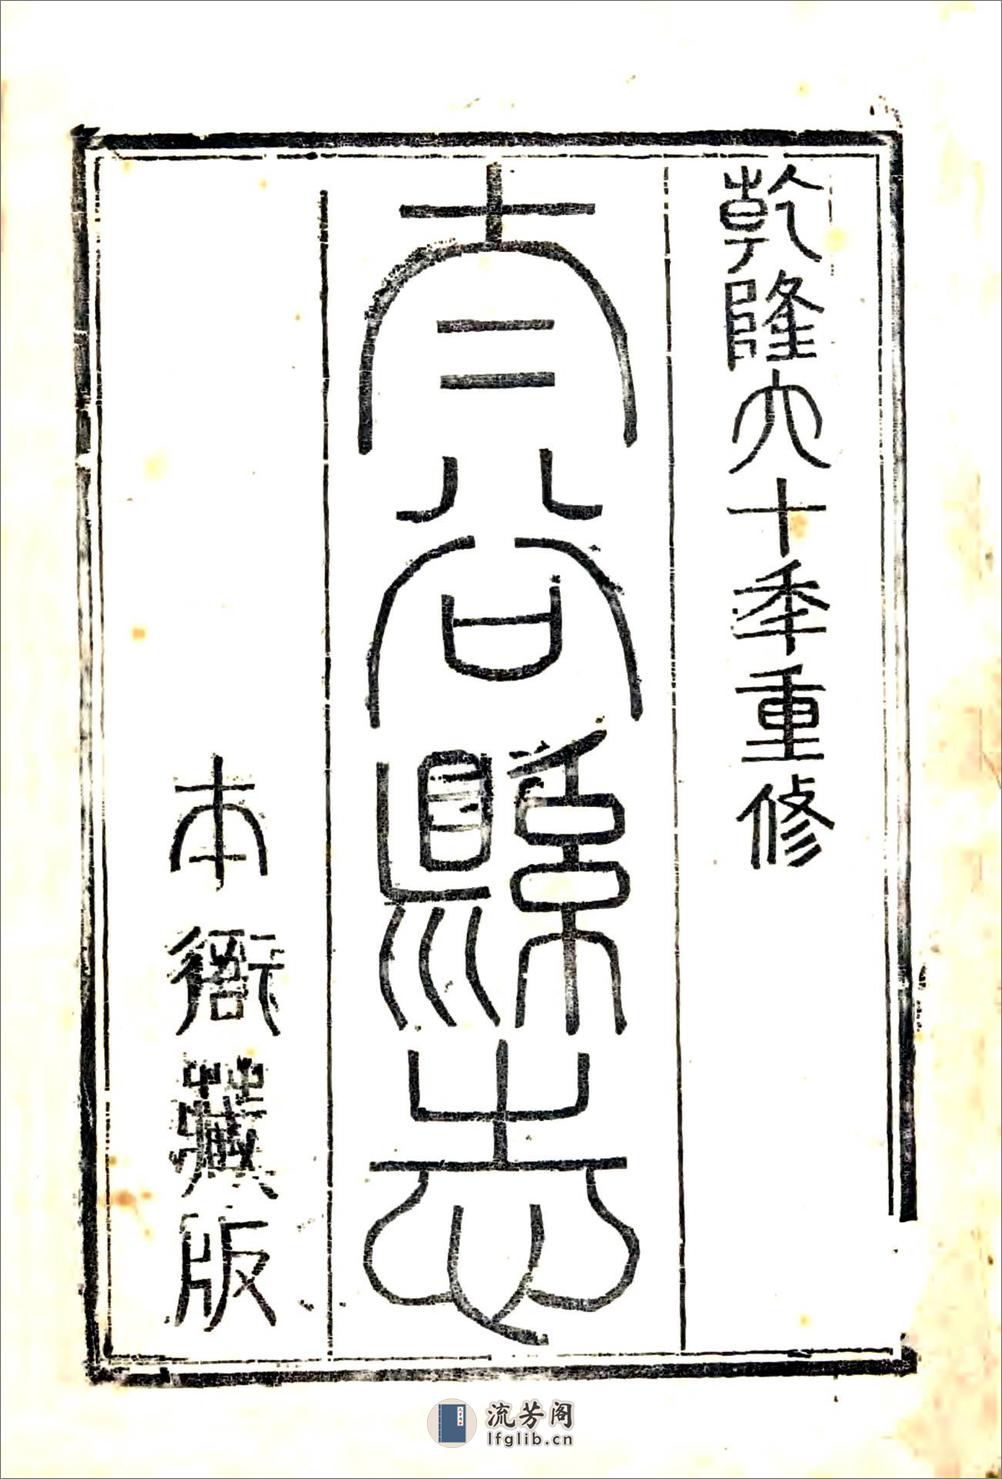 乾隆六十年重修
太谷縣志
本衙藏版
流芳阁
lfglib.cn